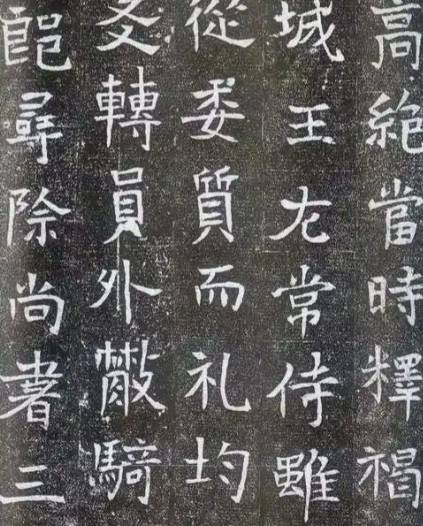 高絶當時釋褐
城王左常侍雖
從委質而礼均
友轉員外散騎
郎尋除尚書三